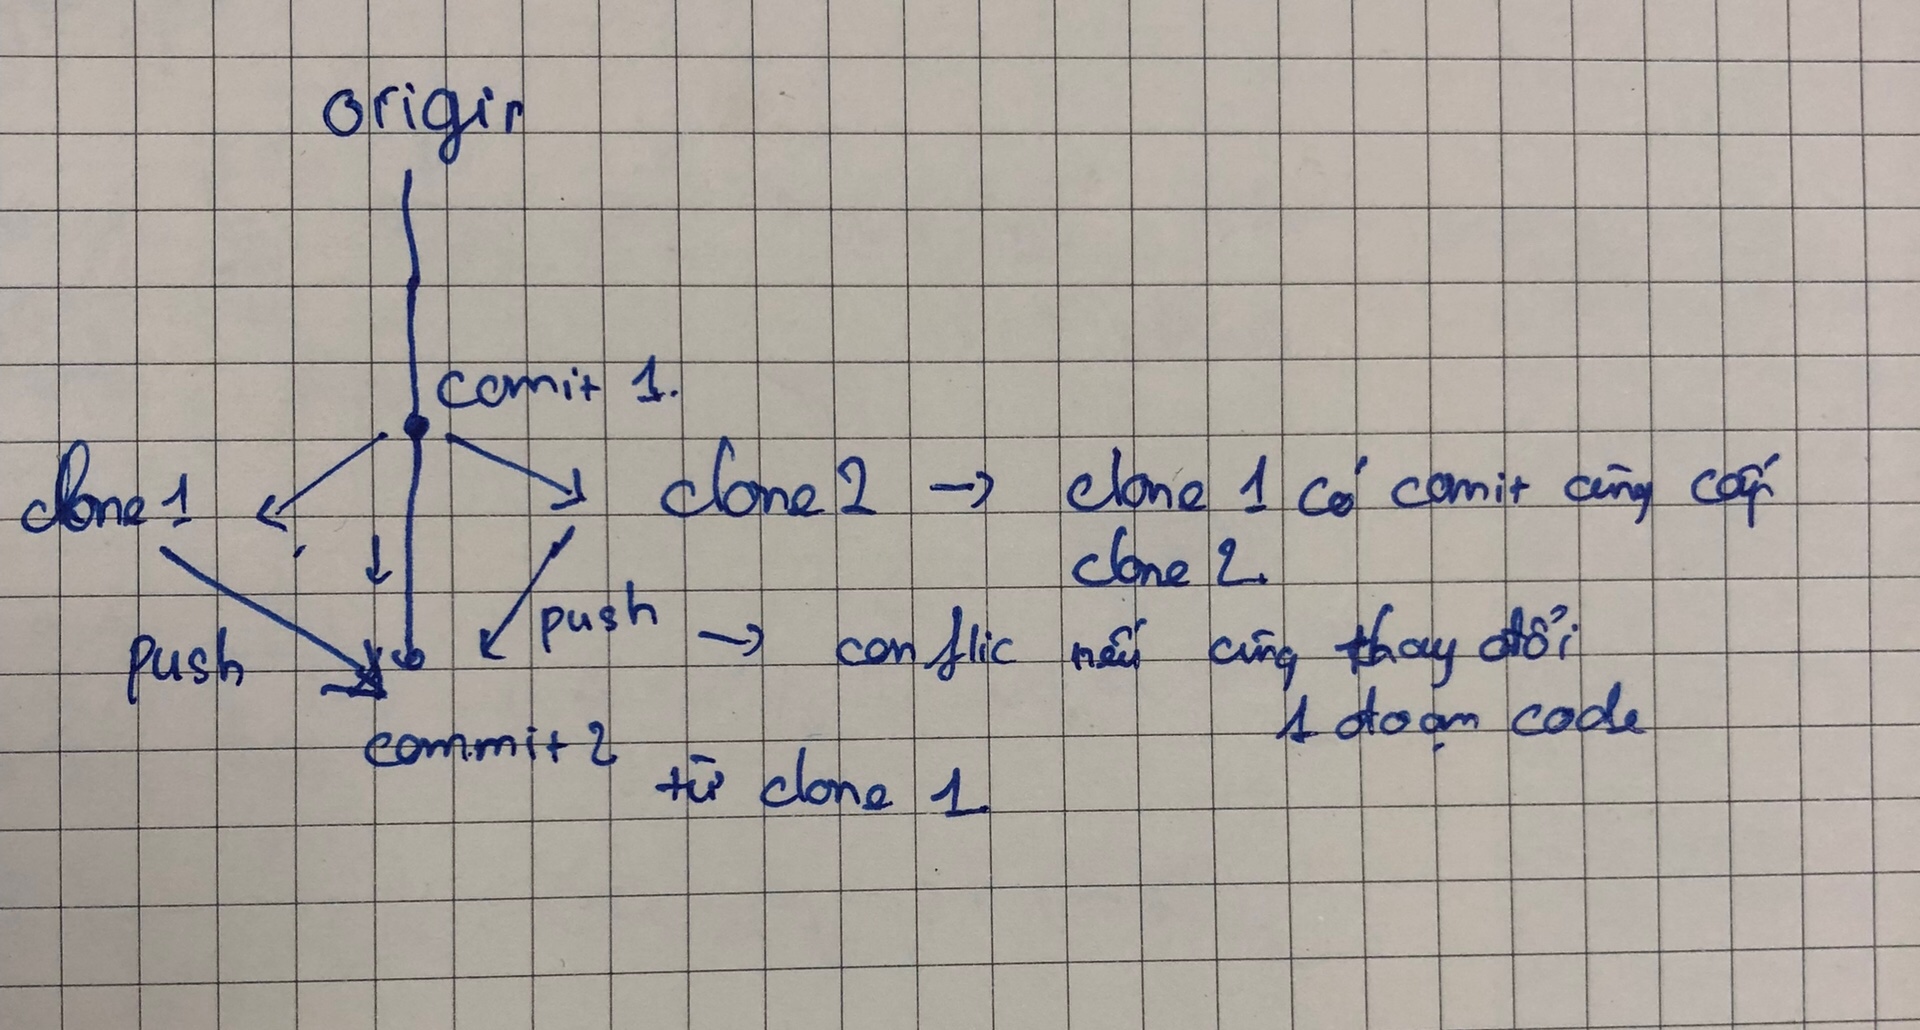 origin
comit 1.
clone 1
clone 2 → clone 1 có comit cùng cấp
clone 2.
push
push → conflic nếu cùng thay đổi
1 đoạn code
commit 2
từ clone 1